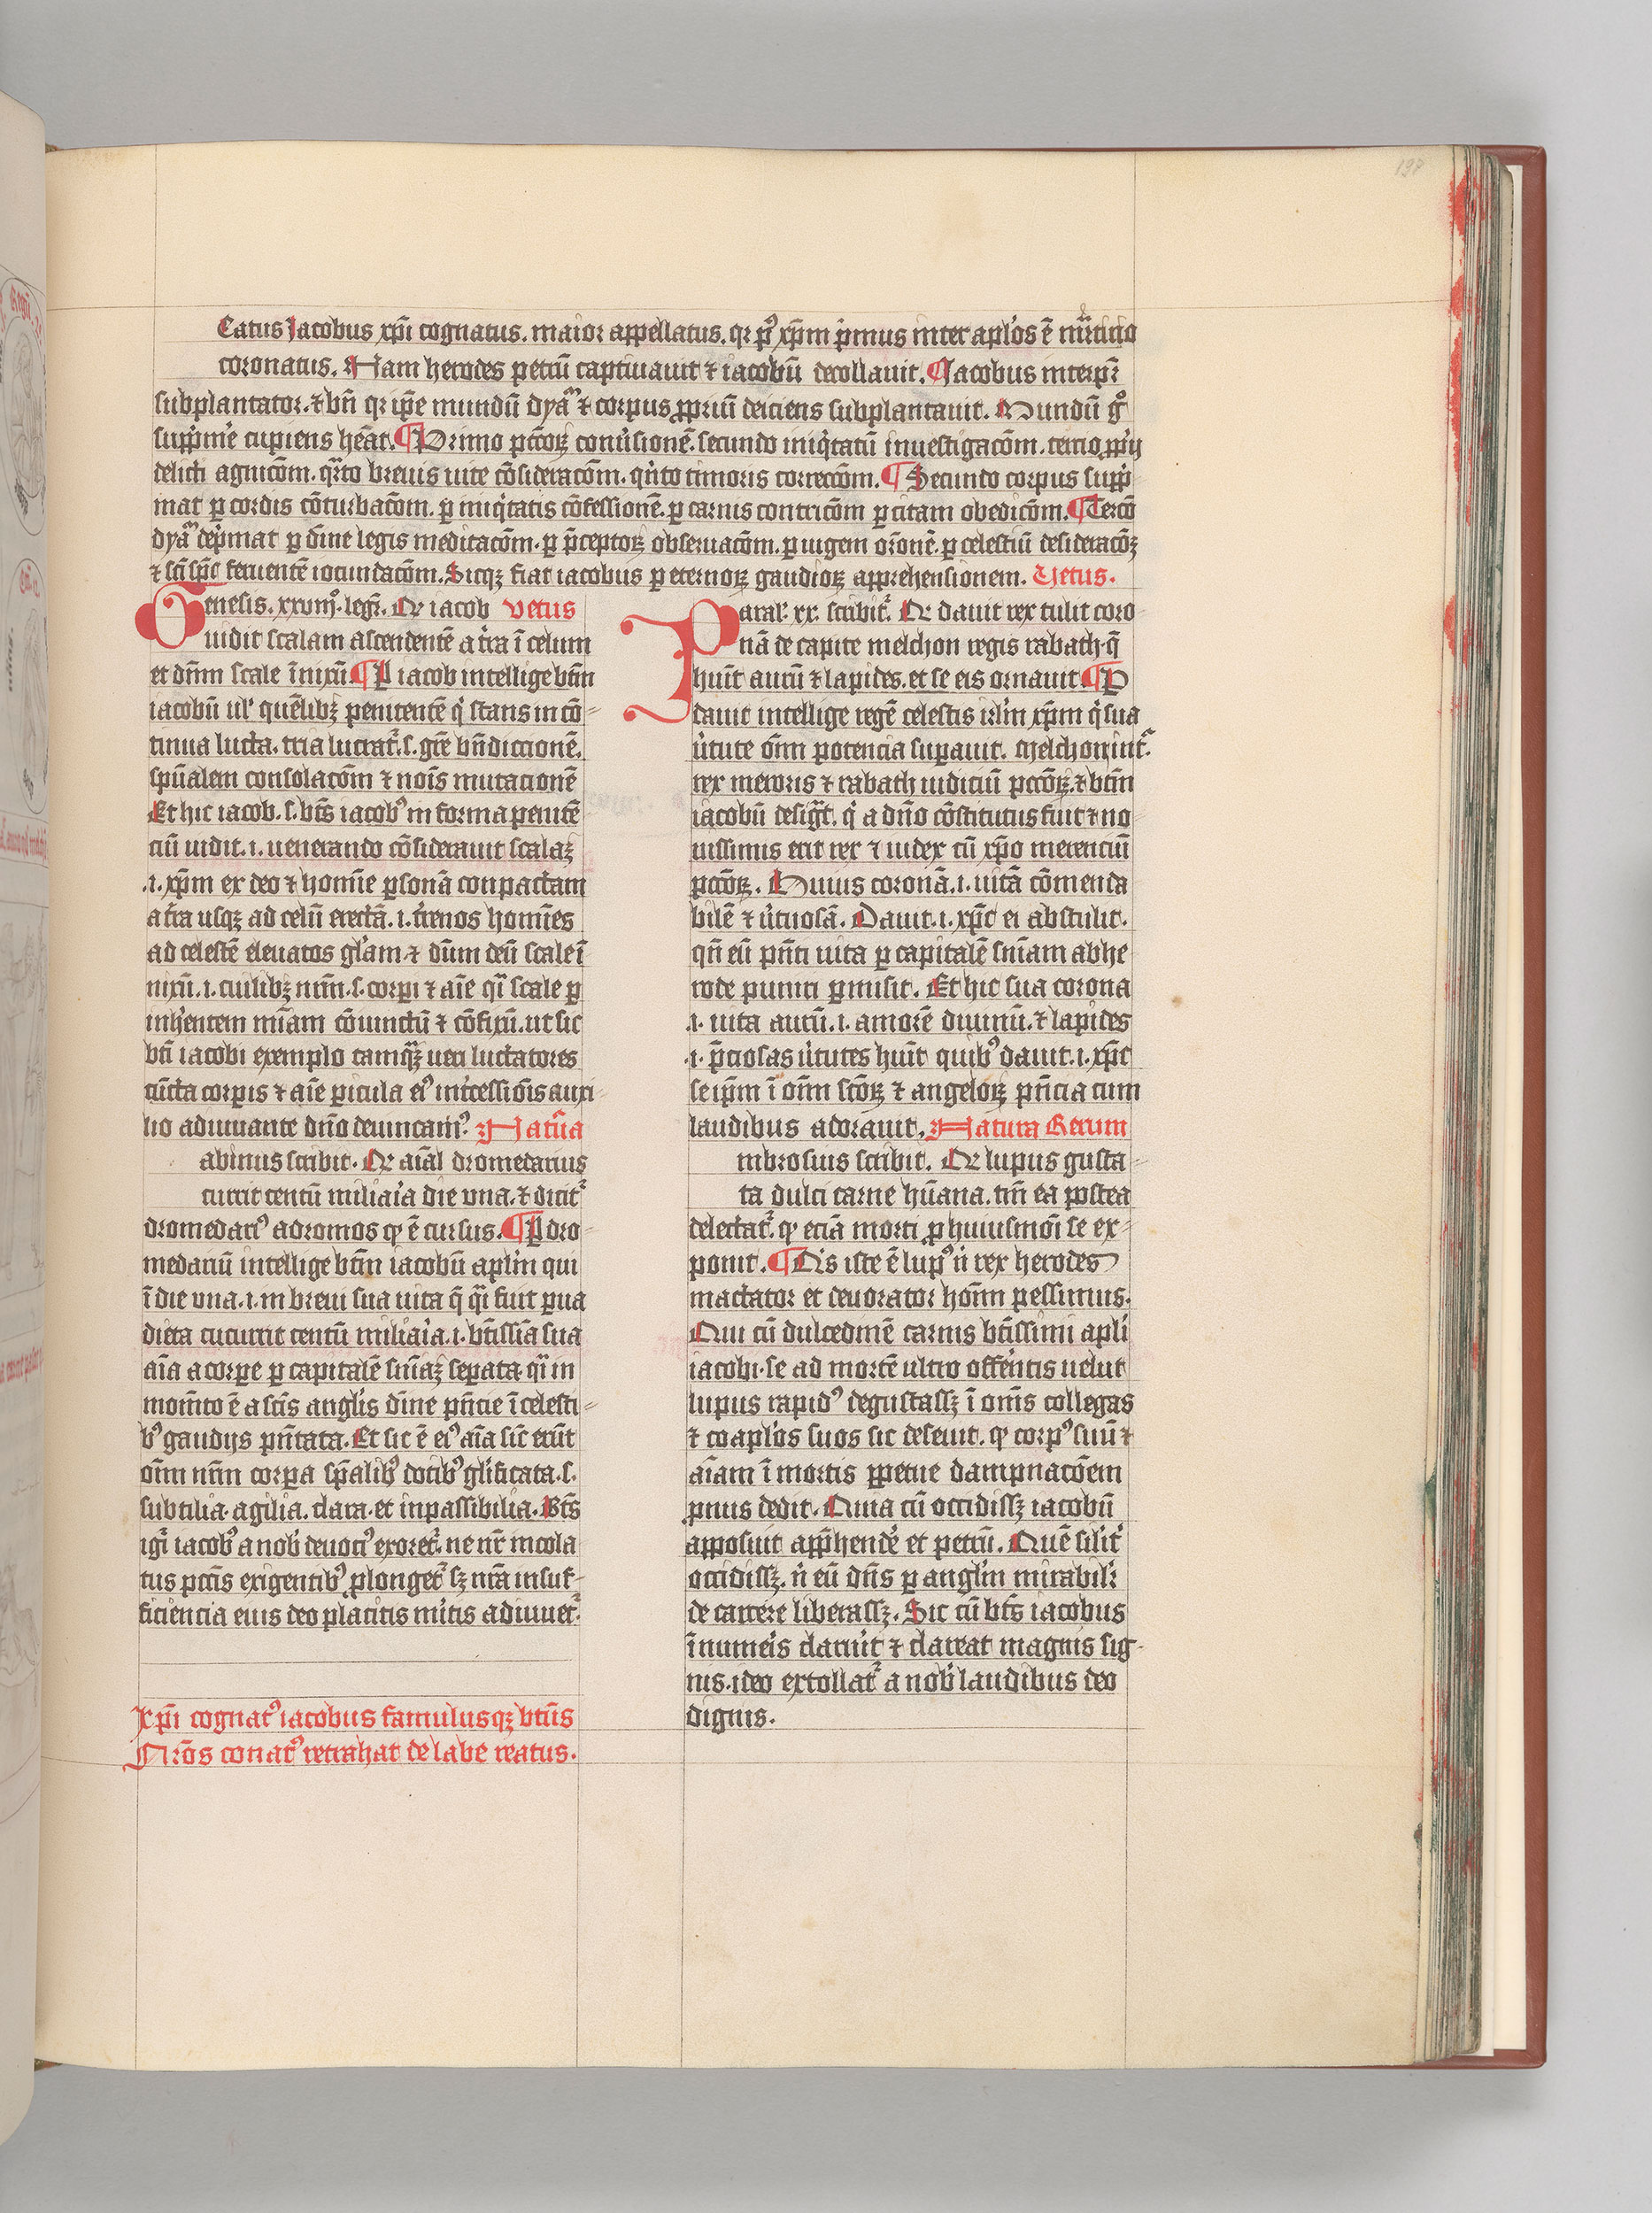 Catus Jacobus xp̄i cognatus. maior appellatus. qr pꝰ xp̄m p̄mus inter aplōs ē mr̄tirio
coronatus. Nam herodes petrū captiuauit ⁊ iacobū decollauit. ¶ Jacobus interpr̄
subplantator. ⁊ bn̄ qr ip̄e mundū dyaᷓ ⁊ corpus ꝓpriū deiciens subplantauit. Mundū gͦ
supp̄me cupiens heāt. ¶ Primo pctōꝝ conūsionē. secundo iniq̇tatū inuestigacōm. tercio ꝓpij
delicti agnicōm. qᷓrto breuis uite cōsideracōm. qn̄to timoris correccōm. ¶ Secundo corpus supp̄
mat ꝑ cordis cōturbacōm. ꝑ iniq̇tatis cōfessionē. ꝑ carnis contricōm ꝑ citam obedicōm. ¶ Tercō
dyaᷓ dep̄mat ꝑ dīne legis meditacōm. ꝑ p̄ceptoꝝ obseruacōm. ꝑ iugem orōnē. ꝑ celestiū desideracōꝫ
⁊ sc̄i sp̄c feruentē iocundacōm. Sicqꝫ fiat iacobus ꝑ eternoꝝ gaudioꝝ apprehensionem. Vetus.
Genesis. xxviijͦ. legr̄. Qr iacob vetus
uidit scalam ascendentē a t̄ra ī celum
et dn̄m scale īnixū ¶ P iacob intellige btm̄
iacobū ulʼ quēlibꝫ penitentē q̇ stans in cō⸗
tinua lucta. tria lucratr̄. s. grē bn̄diccionē.
spūalem consolacōm ⁊ nōis mutacionē
Et hic iacob. s. bt̄s iacobꝰ in forma penitē
ciū uidit. i. uenerando cōsiderauit scalaꝫ
.i. xp̄m ex deo ⁊ homīe ꝑsonā conpactam
a t̄ra usqꝫ ad celū erectā. i. t̄renos homīes
ad celestē eleuatos glʼam ⁊ dūm deū scale ī
nixū. i. cuilibꝫ nrm̄. s. corpi ⁊ aīe qᷓi scale ꝑ
inh̄entem mīam cōiunctū ⁊ cōfixū. ut sic
bt̄i iacobi exemplo tamqᷓꝫ ueri luctatores
cūcta corpis ⁊ aīe ꝑicula eiꝰ int̄cessiōis auxi⸗
lio adiuuante dn̄o deuincamꝰ. Natūa
abinus scribit. Qr aīal dromedarius
currit centū miliaīa die vna. ⁊ dicitr̄
dromedariꝰ a dromos qͥ ē cursus. ¶ P dro⸗
medariū intellige btm̄ iacobū aplm̄ qui
ī die vna. i. in breui sua uita q̄ qᷓi fuit ꝑua
dieta cucurrit centū miliaīa. i. btīssīa sua
aīa a corpe ꝑ capitalē snīaꝫ seꝑata qᷓi in
momn̄to ē a scīs anglīs dīne pn̄cie ī celesti⸗
bꝰ gaudijs pn̄tata. Et sic ē eiꝰ aīa sic̄ erūt
oīm nrm̄ corpa sp̄alibꝰ dotibꝰ glīficata. s.
subtilia. agilia. clara. et inpassibilia. Bt̄s
igr̄ iacobꝰ a nobʼ deuociꝰ exoretr̄. ne nr̄ incola
tus pctīs exigentibꝰ ꝓlongetr̄ sꝫ nrā insuf⸗
ficiencia eius deo placitis mītis adiuuetr̄.
Xp̄i cognatꝰ iacobus famulusqꝫ btūs
Nrōs conatꝰ retrahat de labe reatus.
Paralʼ. xx. scribitr̄. Qr dauit rex tulit coro
nā de capite melchon regis rabath. q̄
huīt aurū ⁊ lapides. et se eis ornauit ¶ P
dauit intellige regē celestis irlm̄ xp̄m q̇ sua
ūtute oīm potencia suꝑauit. Melchon int̄
rex meroris ⁊ rabath iudiciū pctōꝝ. ⁊ btm̄
iacobū desigᷓt. q̇ a dn̄o cōstitutus fuit ⁊ no
uissimis erit rex ⁊ iudex cū xp̄o merenciū
pctōꝝ. Huius coronā. i. uitā cōmenda
bilē ⁊ ūtuosā. Dauit. i. xp̄c ei abstulit.
qn̄ eū pn̄ti uita ꝑ capitalē snīam ab he
rode puniri ꝑmisit. Et hic sua corona
.i. uita aurū. i. amorē diuinū. ⁊ lapides
.i. p̄ciosas ūtutes huīt quibꝰ dauit. i. xp̄c
se ip̄m ī oīm sctōꝝ ⁊ angeloꝝ pn̄cia cum
laudibus adorauit. Natura Rerum
mbrosius scribit. Qr lupus gusta⸗
ta dulci carne hūana. tm̄ ea postea
delectatr̄. qͥ eciā morti ꝓ huiusmōi se ex⸗
ponit. ¶ Qis iste ē lupꝰ ṅ rex herodes
mactator et deuorator hoīm pessimus.
Qui cū dulcedinē carnis btīssimi aplī
iacobi. se ad mortē ultro offerētis uelut
lupus rapidꝰ degustassꝫ ī oīms collegas
⁊ coaplōs suos sic deseuit. qͥ corpꝰ suū ⁊
aīam ī mortis ꝑpetue dampnacōem
prius dedit. Quia cū occidissꝫ iacobū
apposuit app̄hendē et petrū. Quē silīt̄
occidissꝫ. ṅ eū dn̄s ꝑ anglm̄ mirabilʼr
de carcere liberassꝫ. Sic cū bt̄s iacobus
īnumeīs claruit ⁊ clareat magnis sig⸗
nis. ideo extollatr̄ a nobʼ laudibus deo
dignis.